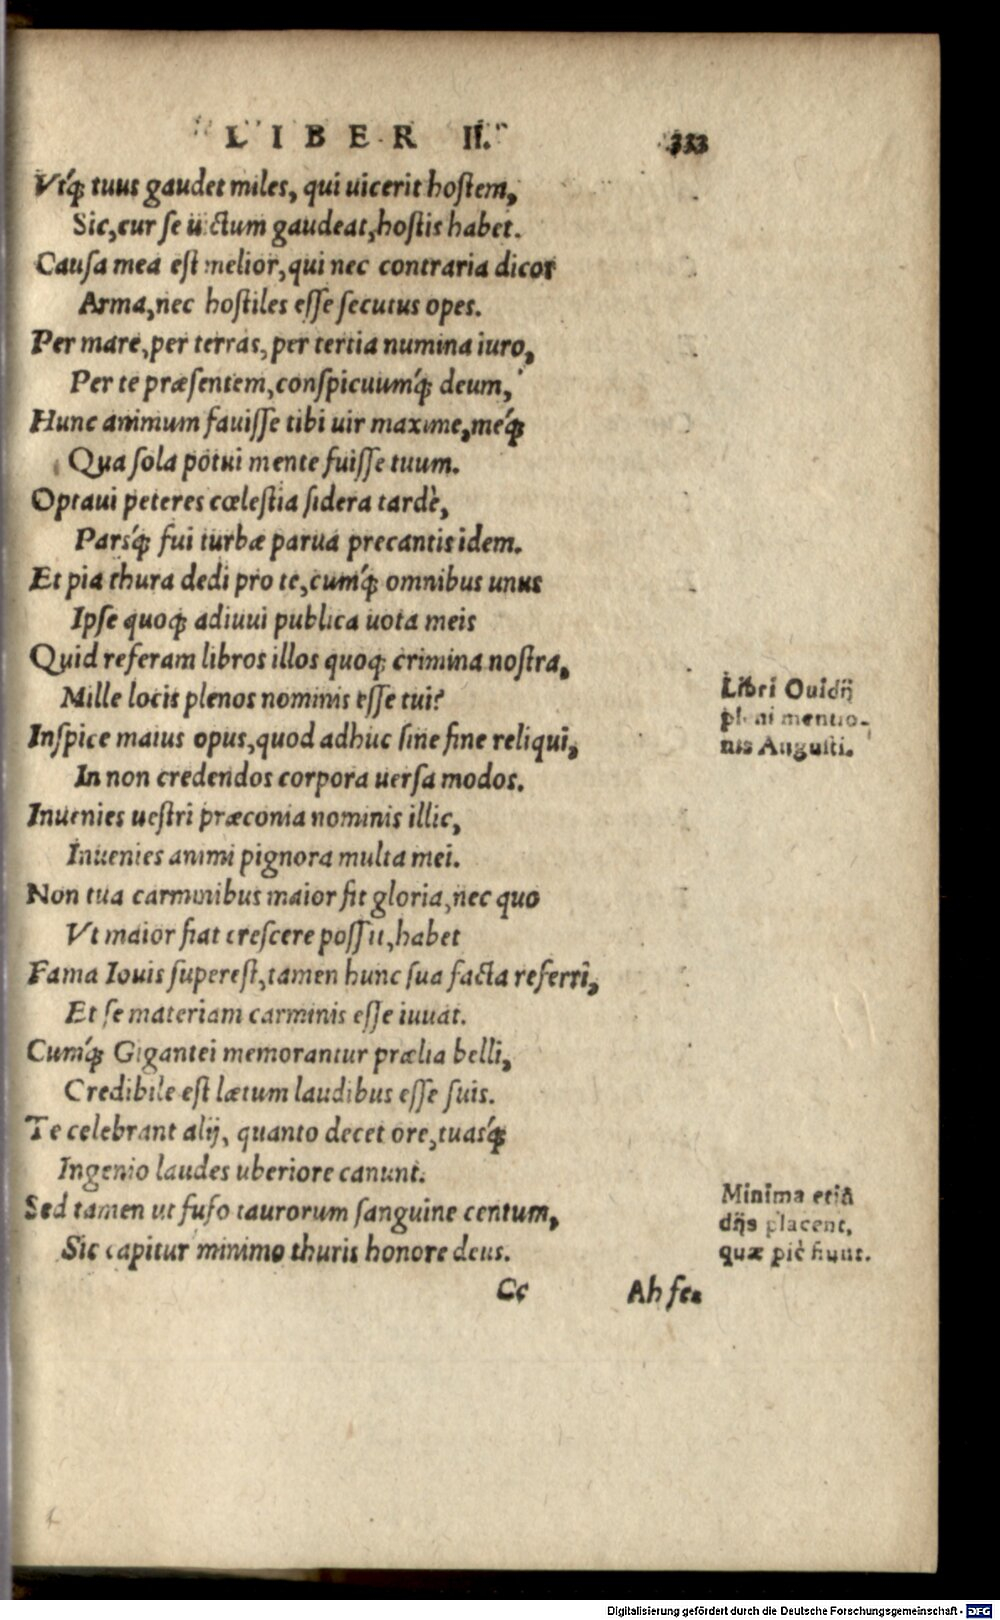 LIBER II. 353
Vtq́; tuus gaudet miles, qui uicerit hostem,
Sic, cur se uictum gaudeat, hostis habet.
Causa mea est melior, qui nec contraria dicor
Arma, nec hostiles esse secutus opes.
Per mare, per terras, per tertia numina iuro,
Per te præsentem, conspicuumq́; deum,
Hunc animum fauisse tibi uir maxime, meq́;
Qua sola potui mente fuisse tuum.
Optaui peteres cœlestia sidera tardè,
Parsq́; fui turbæ parua precantis idem.
Et pia thura dedi pro te, cumq́; omnibus unus
Ipse quoq; adiuui publica uota meis
Quid referam libros illos quoq; crimina nostra,
Mille locis plenos nominis esse tui?
Libri Ouidij
pleni mentio-
nis Augusti.
Inspice maius opus, quod adhuc sine fine reliqui,
In non credendos corpora uersa modos.
Inuenies uestri præconia nominis illic,
Inuenies animi pignora multa mei.
Non tua carminibus maior fit gloria, nec quo
Vt maior fiat crescere possit, habet
Fama Iouis superest, tamen hunc sua facta referri,
Et se materiam carminis esse iuuat.
Cumq́; Gigantei memorantur prælia belli,
Credibile est lætum laudibus esse suis.
Te celebrant alij, quanto decet ore, tuasq́;
Ingenio laudes uberiore canunt.
Sed tamen ut fuso taurorum sanguine centum,
Sic capitur minimo thuris honore deus.
Minima etiã
dijs placent,
quæ piè fiunt.
Cc Ah fe-
Digitalisierung gefördert durch die Deutsche Forschungsgemeinschaft - DFG